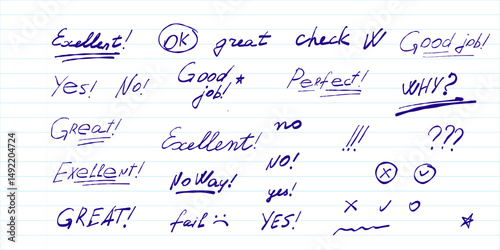 Exellent! OK great check W Good job!
Yes! No! Good job! Perfect! WHY?
Great! Exellent! no !!! ???
Exellent! No Way! NO!
yes!
GREAT! fail YES!
Adobe Stock | #1492204724